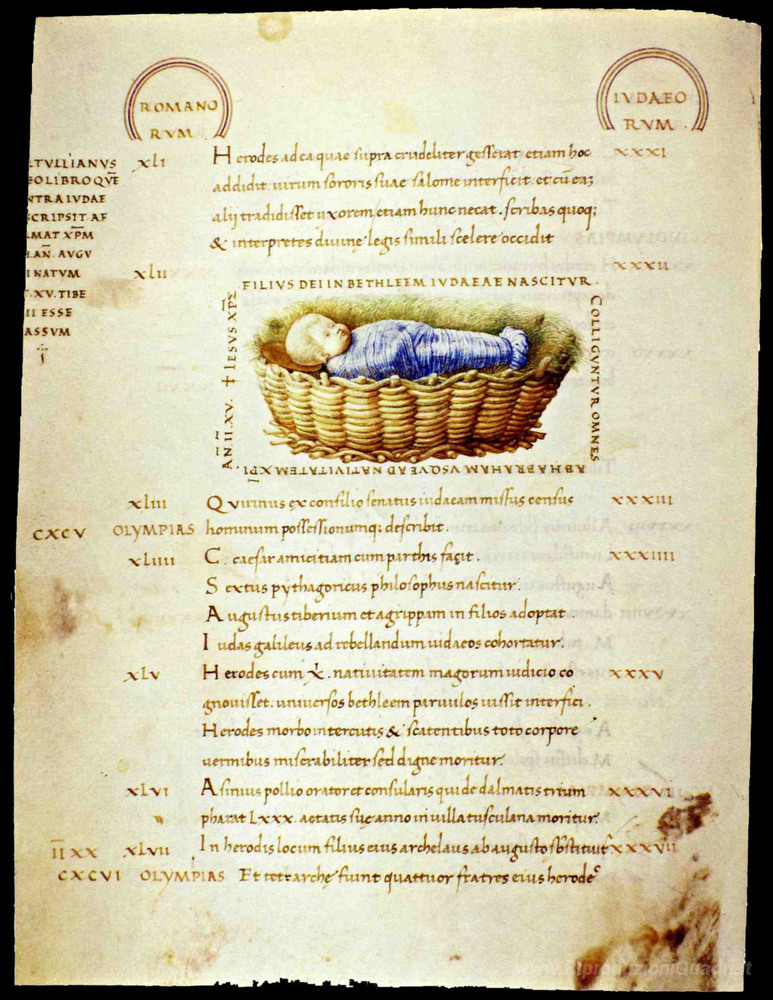 ROMANO
RVM
IVDAEO
RVM
TVLLIANVS
LIBRO QVE
NTRA IVDAE
CRIPSIT AF
MAT XPM
AN. AVGV
NATVM
XV. TIBE
II ESSE
ASSVM
XLI Herodes ad ea quae supra crudeliter gesserat etiam hoc XXXI
addidit. uirum sororis suae salome interficit. et cū eā;
alii tradidisset uxorem, etiam hunc necat. scribas quoq;
& interpretes diuine legis simili scelere occidit
XLII XXXII
FILIVS DEI IN BETHLEEM IVDAEAE NASCITVR.
COLLIGVNTVR OMNES
AB HABRAHAM VSQVE AD NATIVITATEM XPI.
AN̄. II. XV. ✝ IESVS XPS
XLIII Quirinus ex consilio senatus iudaeam missus census XXXIII
CXCV OLYMPIAS hominum possessionumq; describit.
XLIIII C. caesar amicitiam cum parthis facit. XXXIIII
Sextus pythagoricus philosophus nascitur.
Augustus tiberium et agrippam in filios adoptat
Iudas galileus ad rebellandum iudaeos cohortatur.
XLV Herodes cum nativitatem magorum iudicio co XXXV
gnouisset. uniuersos bethleem paruulos iussit interfici.
Herodes morbo intercutis & scatentibus toto corpore
uermibus miserabiliter sed digne moritur.
XLVI Asinius pollio orator et consularis qui de dalmatis trium XXXVI
pharat LXXX. aetatis suę anno in uilla tusculana moritur.
II XX XLVII In herodis locum filius eius archelaus ab augusto sbstituit XXXVII
CXCVI OLYMPIAS Et tetrarchę fiunt quattuor fratres eius herode